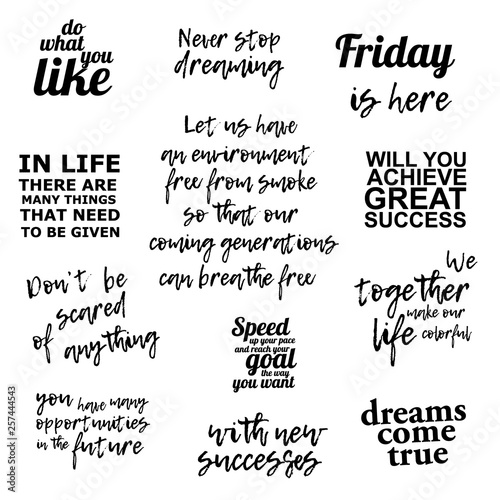 do
what
you
like
Never stop
dreaming
Friday
is here
Let us have
an environment
free from smoke
so that our
coming generations
can breathe free
IN LIFE
THERE ARE
MANY THINGS
THAT NEED
TO BE GIVEN
WILL YOU
ACHIEVE
GREAT
SUCCESS
Don't be
scared
of anything
We
together
make our
life colorful
Speed
up your pace
and reach your
goal
the way
you want
you have many
opportunities
in the future
with new
successes
dreams
come
true
Adobe Stock | #257444543